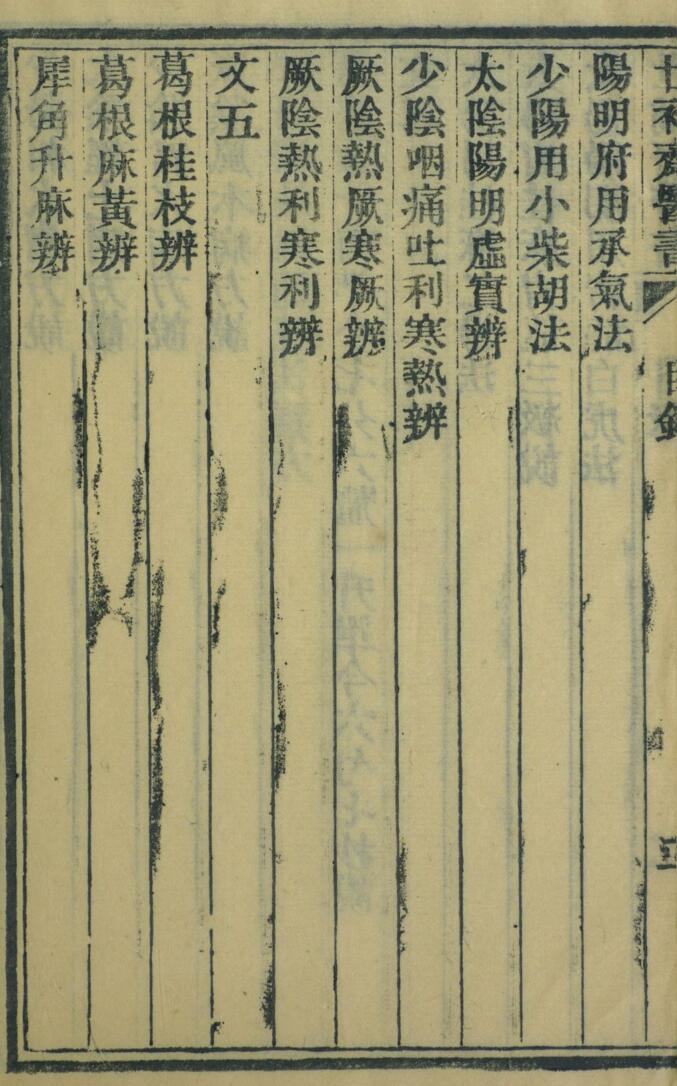 世補齋醫書 目錄
陽明府用承氣法
少陽用小柴胡法
太陰陽明虛實辨
少陰咽痛吐利寒熱辨
厥陰熱厥寒厥辨
厥陰熱利寒利辨
文五
葛根桂枝辨
葛根麻黃辨
犀角升麻辨